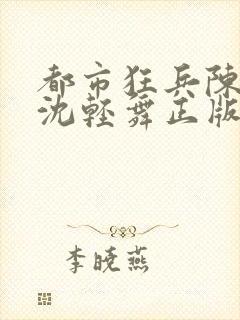 都市狂兵陳
沈輕舞正版
李曉燕